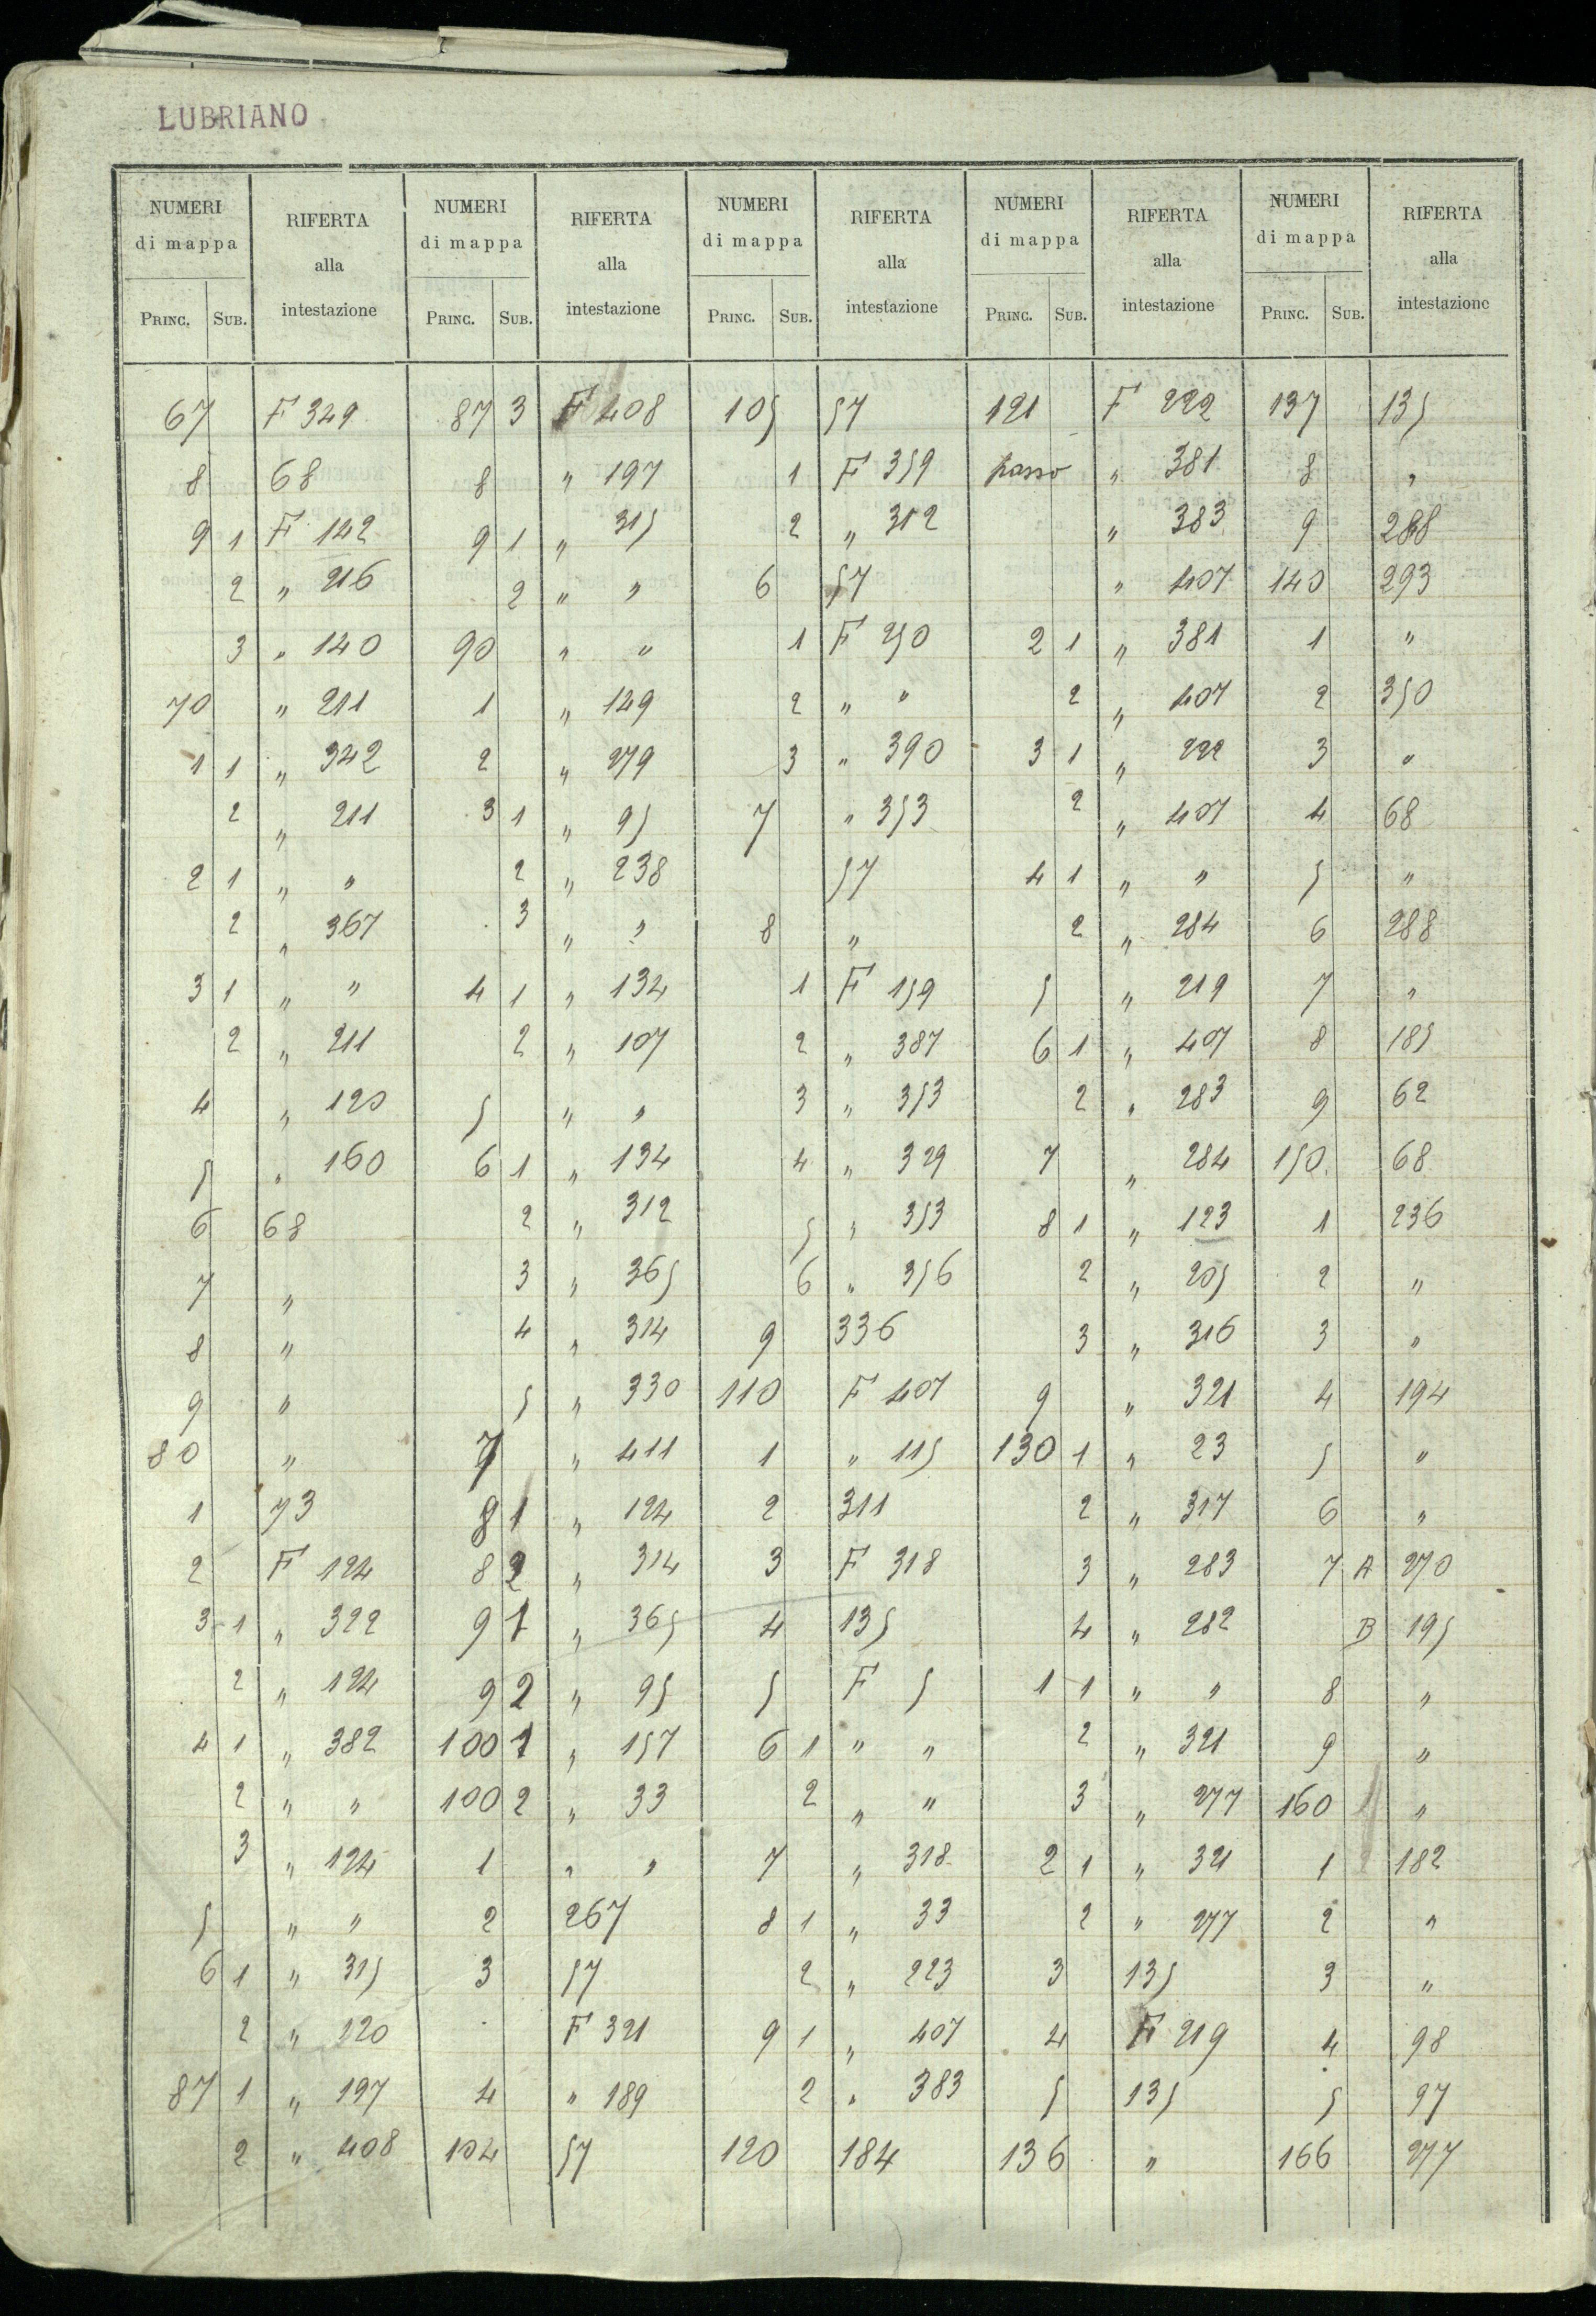 LUBRIANO
NUMERI di mappa RIFERTA alla intestazione NUMERI di mappa RIFERTA alla intestazione NUMERI di mappa RIFERTA alla intestazione NUMERI di mappa RIFERTA alla intestazione NUMERI di mappa RIFERTA alla intestazione
PRINC. SUB. PRINC. SUB. PRINC. SUB. PRINC. SUB. PRINC. SUB.
67 F 349 87 3 F 408 105 57 121 F 222 137 135
8 68 8 " 197 1 F 359 passo " 381 8 "
9 1 F 142 9 1 " 315 2 " 312 " 383 9 288
2 " 216 2 " " 6 57 " 407 140 293
3 " 140 90 " " 1 F 250 2 1 " 381 1 "
70 " 211 1 " 149 2 " " 2 " 407 2 350
1 1 " 342 2 " 279 3 " 390 3 1 " 222 3 "
2 " 211 3 1 " 95 7 " 353 2 " 407 4 68
2 1 " " 2 " 238 57 4 1 " " 5 "
2 " 367 3 " " 8 " 2 " 284 6 288
3 1 " " 4 1 " 134 1 F 159 5 " 219 7 "
2 " 211 2 " 107 2 " 387 6 1 " 407 8 185
4 " 120 5 " " 3 " 353 2 " 283 9 62
5 " 160 6 1 " 134 4 " 329 7 " 284 150 68
6 68 2 " 312 5 " 353 8 1 " 123 1 236
7 " 3 " 365 6 " 356 2 " 205 2 "
8 " 4 " 314 9 336 3 " 316 3 "
9 " 5 " 330 110 F 407 9 " 321 4 194
80 " 7 " 411 1 " 115 130 1 " 23 5 "
1 73 8 1 " 124 2 311 2 " 317 6 "
2 F 124 8 2 " 314 3 F 318 3 " 283 7 A 270
3 1 " 322 9 1 " 365 4 135 4 " 282 B 195
2 " 124 9 2 " 95 5 F 5 1 1 " " 8 "
4 1 " 382 100 1 " 157 6 1 " " 2 " 321 9 "
2 " " 100 2 " 33 2 " " 3 " 277 160 "
3 " 124 1 " " 7 " 318 2 1 " 321 1 182
5 " " 2 267 8 1 " 33 2 " 277 2 "
6 1 " 315 3 57 2 " 223 3 135 3 "
2 " 120 F 321 9 1 " 407 4 F 219 4 98
87 1 " 197 4 " 189 2 " 383 5 135 5 97
2 " 408 104 57 120 184 136 " 166 277